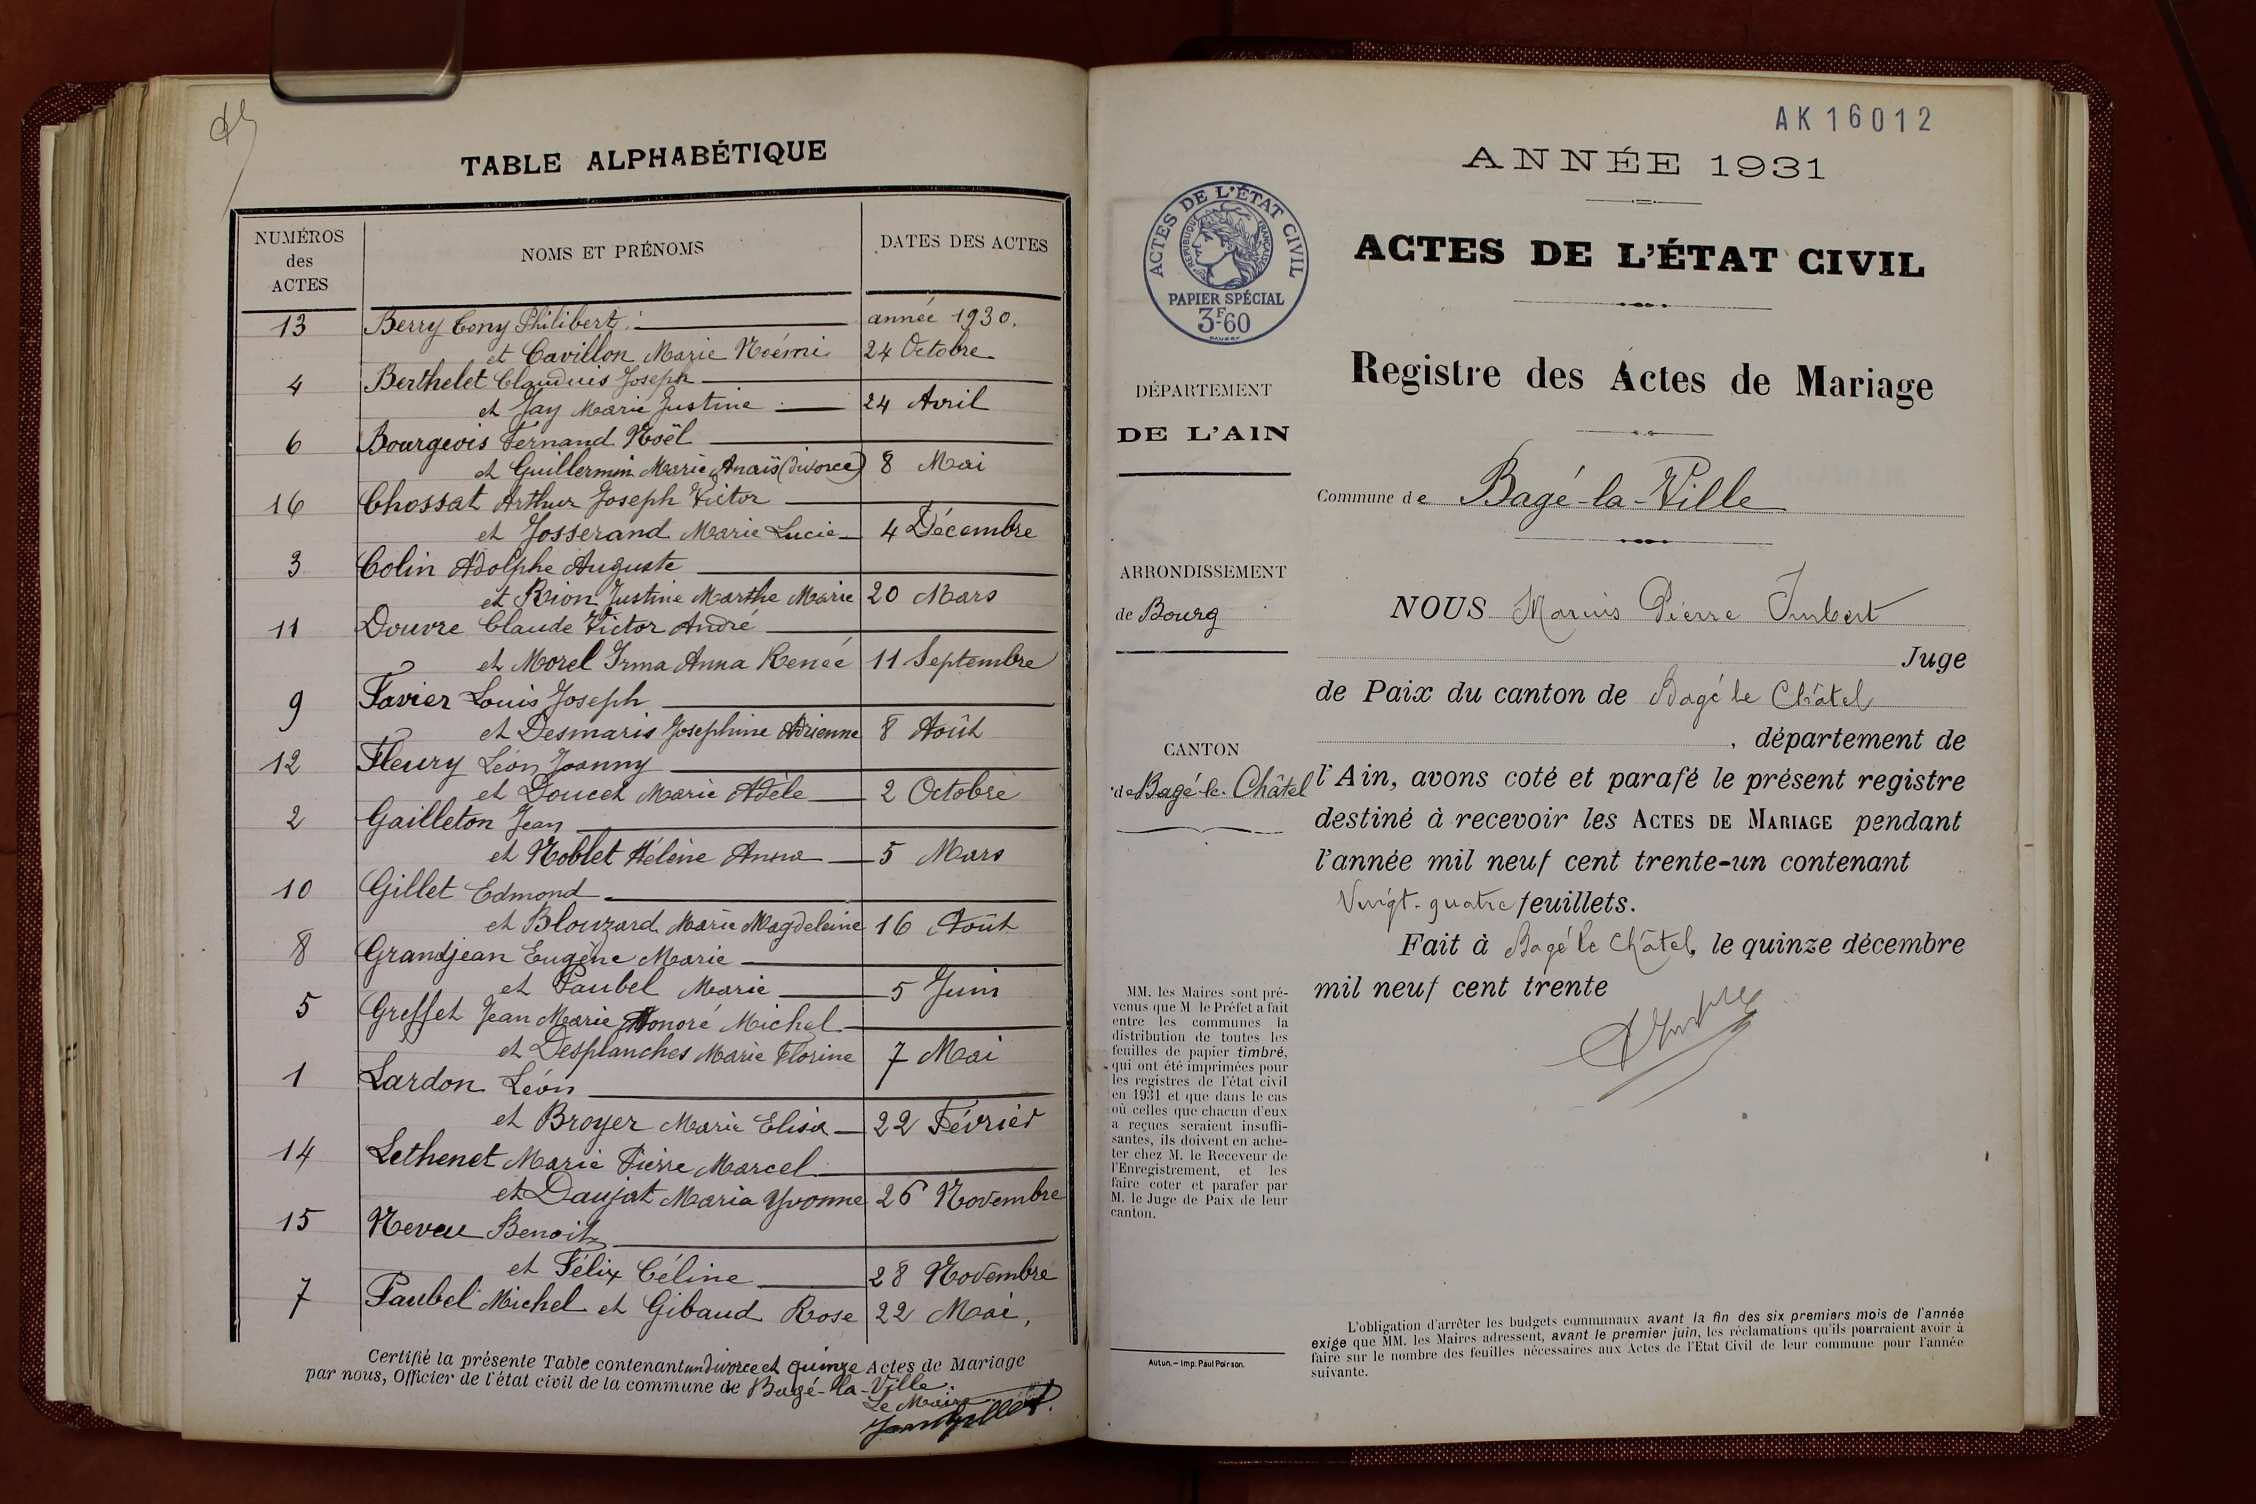 TABLE ALPHABÉTIQUE
NUMÉROS des ACTES
NOMS ET PRÉNOMS
DATES DES ACTES
13 Berry Tony Philibert année 1930.
et Cavillon Marie Noémi 24 Octobre
4 Berthelet Claudius Joseph
et Jay Marie Justine 24 Avril
6 Bourgeois Fernand Noël
et Guillermin Marie Anaïs (divorce) 8 Mai
16 Chossat Arthur Joseph Victor
et Josserand Marie Lucie 4 Décembre
3 Colin Adolphe Auguste
et Rion Justine Marthe Marie 20 Mars
11 Douvre Claude Victor André
et Morel Irma Anna Renée 11 Septembre
9 Favier Louis Joseph
et Desmaris Josephine Adrienne 8 Août
12 Fleury Léon Joanny
et Doucet Marie Adèle 2 Octobre
2 Gailleton Jean
et Noblet Hélène Anna 5 Mars
10 Gillet Edmond
et Blouzard Marie Magdeleine 16 Août
8 Grandjean Eugène Marie
et Paubel Marie 5 Juin
5 Greffet Jean Marie Honoré Michel
et Desplanches Marie Florine 7 Mai
1 Lardon Léon
et Broyer Marie Elisa 22 Février
14 Lethenet Marie Pierre Marcel
et Daujat Maria Yvonne 26 Novembre
15 Neveu Benoit
et Félix Céline 28 Novembre
7 Paubel Michel et Gibaud Rose 22 Mai,
Certifié la présente Table contenant un divorce et quinze Actes de Mariage
par nous, Officier de l'état civil de la commune de Bagé-la-Ville.
Le Maire
AK16012
ANNÉE 1931
ACTES DE L'ÉTAT CIVIL
RÉPUBLIQUE FRANÇAISE
PAPIER SPÉCIAL
3F60
ACTES DE L'ÉTAT CIVIL
Registre des Actes de Mariage
DÉPARTEMENT
DE L'AIN
Commune de Bagé-la-Ville
ARRONDISSEMENT
de Bourg
CANTON
de Bagé-le-Châtel
NOUS Marius Pierre Imbert
Juge
de Paix du canton de Bagé le Châtel
, département de
l'Ain, avons coté et parafé le présent registre
destiné à recevoir les ACTES DE MARIAGE pendant
l'année mil neuf cent trente-un contenant
Vingt-quatre feuillets.
Fait à Bagé le Châtel, le quinze décembre
mil neuf cent trente
MM. les Maires sont pré-
venus que M le Préfet a fait
entre les communes la
distribution de toutes les
feuilles de papier timbré,
qui ont été imprimées pour
les registres de l'état civil
en 1931 et que dans le cas
où celles que chacun d'eux
a reçues seraient insuffi-
santes, ils doivent en ache-
ter chez M. le Receveur de
l'Enregistrement, et les
faire coter et parafer par
M. le Juge de Paix de leur
canton.
Autun. — Imp. Paul Poirson.
L'obligation d'arrêter les budgets communaux avant la fin des six premiers mois de l'année
exige que MM. les Maires adressent, avant le premier juin, les réclamations qu'ils pourraient avoir à
faire sur le nombre des feuilles nécessaires aux Actes de l'Etat Civil de leur commune pour l'année
suivante.